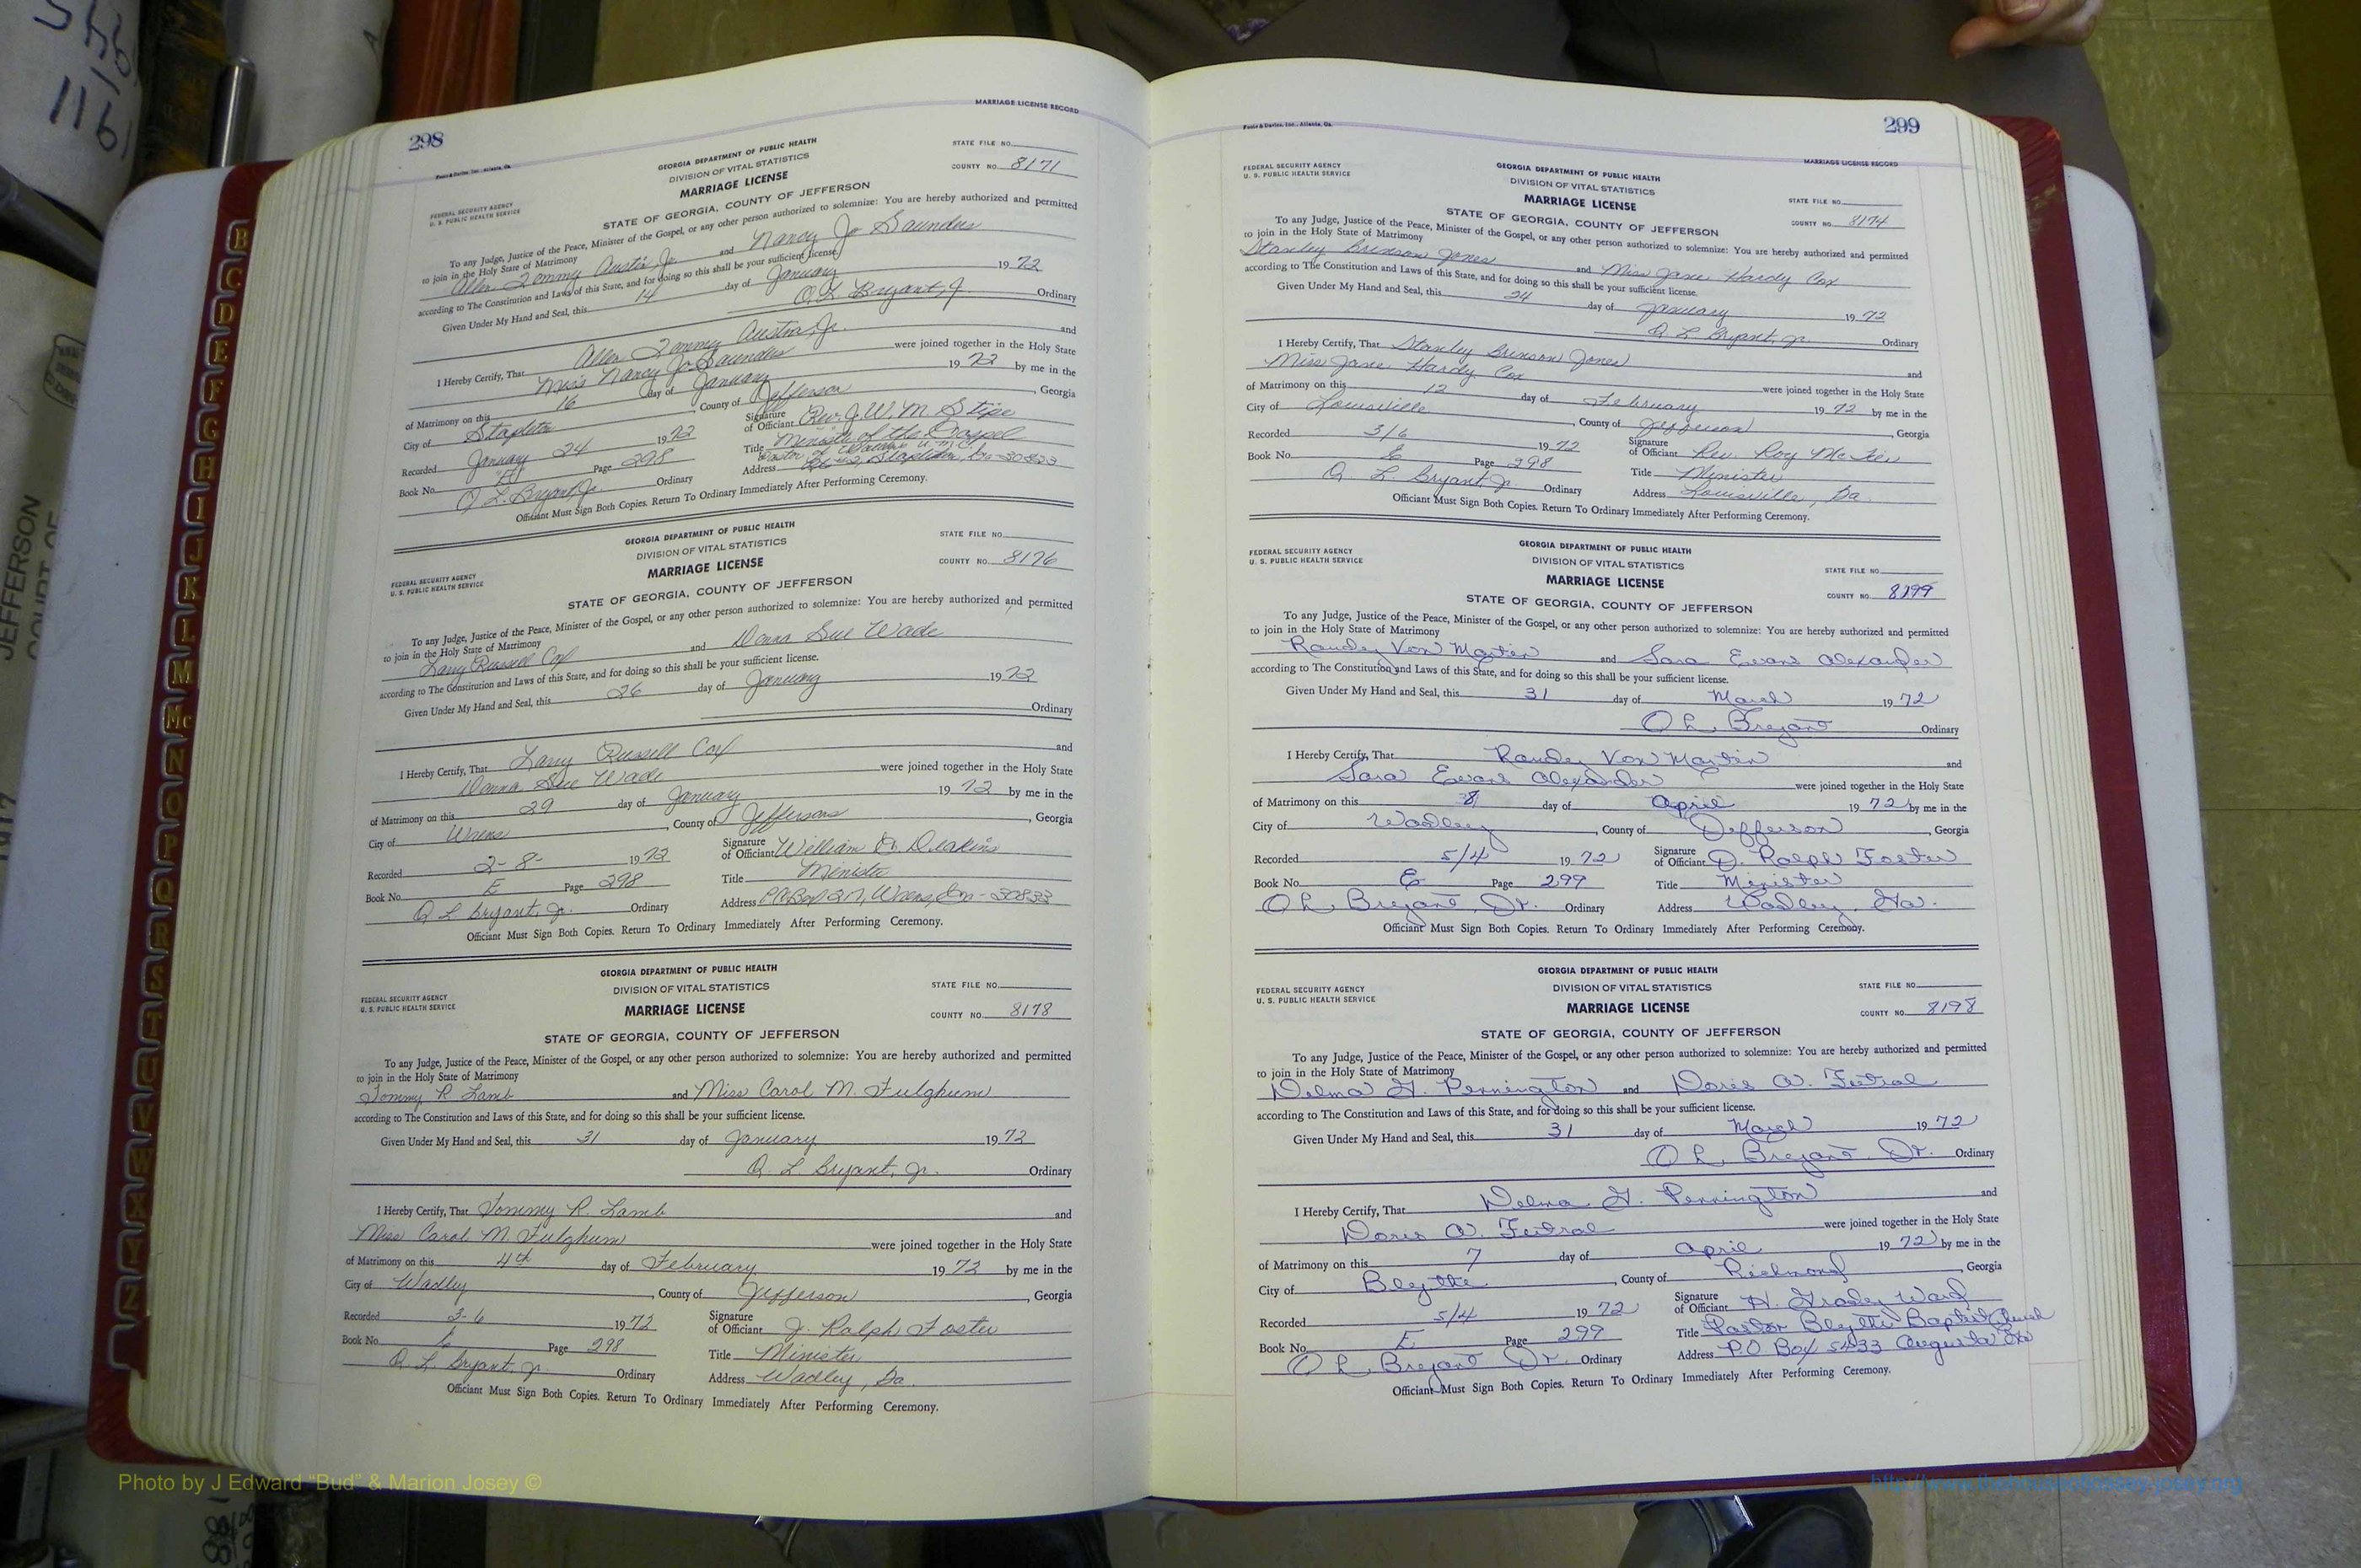 298
MARRIAGE LICENSE RECORD
Foote & Davies, Inc., Atlanta, Ga.
GEORGIA DEPARTMENT OF PUBLIC HEALTH
STATE FILE NO.
DIVISION OF VITAL STATISTICS
COUNTY NO. 8171
FEDERAL SECURITY AGENCY
U. S. PUBLIC HEALTH SERVICE
MARRIAGE LICENSE
STATE OF GEORGIA, COUNTY OF JEFFERSON
To any Judge, Justice of the Peace, Minister of the Gospel, or any other person authorized to solemnize: You are hereby authorized and permitted
to join in the Holy State of Matrimony
Allen Tommy Austin, Jr. and Nancy Jo Saunders
according to The Constitution and Laws of this State, and for doing so this shall be your sufficient license.
Given Under My Hand and Seal, this 14 day of January 1972
Q. L. Bryant, Jr. Ordinary
I Hereby Certify, That Allen Tommy Austin, Jr. and
Miss Nancy Jo Saunders were joined together in the Holy State
of Matrimony on this 16 day of January 1972 by me in the
City of Stapleton, County of Jefferson, Georgia
Recorded January 24 1972 Signature of Officiant Rev. J. W. M. Stipe
Book No. "E" Page 298 Title Minister of the Gospel
Pastor of U.M.Ch.
Q. L. Bryant, Jr. Ordinary Address Rt #2, Stapleton, Ga-30823
Officiant Must Sign Both Copies. Return To Ordinary Immediately After Performing Ceremony.
GEORGIA DEPARTMENT OF PUBLIC HEALTH
STATE FILE NO.
DIVISION OF VITAL STATISTICS
COUNTY NO. 8176
FEDERAL SECURITY AGENCY
U. S. PUBLIC HEALTH SERVICE
MARRIAGE LICENSE
STATE OF GEORGIA, COUNTY OF JEFFERSON
To any Judge, Justice of the Peace, Minister of the Gospel, or any other person authorized to solemnize: You are hereby authorized and permitted
to join in the Holy State of Matrimony
Larry Russell Cox and Donna Sue Wade
according to The Constitution and Laws of this State, and for doing so this shall be your sufficient license.
Given Under My Hand and Seal, this 26 day of January 1972
Ordinary
I Hereby Certify, That Larry Russell Cox and
Donna Sue Wade were joined together in the Holy State
of Matrimony on this 29 day of January 1972 by me in the
City of Wrens, County of Jefferson, Georgia
Recorded 2-8- 1972 Signature of Officiant William D. Deakins
Book No. E Page 298 Title Minister
Q L Bryant, Jr. Ordinary Address P.O. Box 217, Wrens, Ga-30833
Officiant Must Sign Both Copies. Return To Ordinary Immediately After Performing Ceremony.
GEORGIA DEPARTMENT OF PUBLIC HEALTH
STATE FILE NO.
DIVISION OF VITAL STATISTICS
FEDERAL SECURITY AGENCY
U. S. PUBLIC HEALTH SERVICE
MARRIAGE LICENSE
COUNTY NO. 8178
STATE OF GEORGIA, COUNTY OF JEFFERSON
To any Judge, Justice of the Peace, Minister of the Gospel, or any other person authorized to solemnize: You are hereby authorized and permitted
to join in the Holy State of Matrimony
Tommy R Lamb and Miss Carol M. Fulghum
according to The Constitution and Laws of this State, and for doing so this shall be your sufficient license.
Given Under My Hand and Seal, this 31 day of January 1972
Q. L. Bryant, Jr. Ordinary
I Hereby Certify, That Tommy R. Lamb and
Miss Carol M. Fulghum were joined together in the Holy State
of Matrimony on this 4th day of February 1972 by me in the
City of Wadley, County of Jefferson, Georgia
Recorded 3-6 1972 Signature of Officiant J. Ralph Foster
Book No. E Page 298 Title Minister
Q. L. Bryant, Jr. Ordinary Address Wadley, Ga.
Officiant Must Sign Both Copies. Return To Ordinary Immediately After Performing Ceremony.
299
Foote & Davies, Inc., Atlanta, Ga.
MARRIAGE LICENSE RECORD
FEDERAL SECURITY AGENCY
U. S. PUBLIC HEALTH SERVICE
GEORGIA DEPARTMENT OF PUBLIC HEALTH
DIVISION OF VITAL STATISTICS
MARRIAGE LICENSE
STATE FILE NO.
STATE OF GEORGIA, COUNTY OF JEFFERSON
COUNTY NO. 8174
To any Judge, Justice of the Peace, Minister of the Gospel, or any other person authorized to solemnize: You are hereby authorized and permitted
to join in the Holy State of Matrimony
Stanley Brinson Jones and Miss Jane Hardy Cox
according to The Constitution and Laws of this State, and for doing so this shall be your sufficient license.
Given Under My Hand and Seal, this 24 day of January 1972
Q L Bryant, Jr. Ordinary
I Hereby Certify, That Stanley Brinson Jones and
Miss Jane Hardy Cox were joined together in the Holy State
of Matrimony on this 12 day of February 1972 by me in the
City of Louisville, County of Jefferson, Georgia
Recorded 3/6 1972 Signature of Officiant Rev. Roy
Book No. E Page 298 Title Minister
Q. L. Bryant Jr. Ordinary Address Louisville, Ga.
Officiant Must Sign Both Copies. Return To Ordinary Immediately After Performing Ceremony.
FEDERAL SECURITY AGENCY
U. S. PUBLIC HEALTH SERVICE
GEORGIA DEPARTMENT OF PUBLIC HEALTH
DIVISION OF VITAL STATISTICS
STATE FILE NO.
MARRIAGE LICENSE
COUNTY NO. 8199
STATE OF GEORGIA, COUNTY OF JEFFERSON
To any Judge, Justice of the Peace, Minister of the Gospel, or any other person authorized to solemnize: You are hereby authorized and permitted
to join in the Holy State of Matrimony
Randey Von Martin and Sara Evans Alexander
according to The Constitution and Laws of this State, and for doing so this shall be your sufficient license.
Given Under My Hand and Seal, this 31 day of March 1972
Q L Bryant Ordinary
I Hereby Certify, That Randey Von Martin and
Sara Evans Alexander were joined together in the Holy State
of Matrimony on this 8 day of April 1972 by me in the
City of Wadley, County of Jefferson, Georgia
Recorded 5/4 1972 Signature of Officiant J. Ralph Foster
Book No. E Page 299 Title Minister
Q L Bryant, Jr. Ordinary Address Wadley, Ga.
Officiant Must Sign Both Copies. Return To Ordinary Immediately After Performing Ceremony.
GEORGIA DEPARTMENT OF PUBLIC HEALTH
FEDERAL SECURITY AGENCY
U. S. PUBLIC HEALTH SERVICE
DIVISION OF VITAL STATISTICS
STATE FILE NO.
MARRIAGE LICENSE
COUNTY NO. 8198
STATE OF GEORGIA, COUNTY OF JEFFERSON
To any Judge, Justice of the Peace, Minister of the Gospel, or any other person authorized to solemnize: You are hereby authorized and permitted
to join in the Holy State of Matrimony
Delma G. Pennington and Doris W. Futral
according to The Constitution and Laws of this State, and for doing so this shall be your sufficient license.
Given Under My Hand and Seal, this 31 day of March 1972
Q L Bryant Jr. Ordinary
I Hereby Certify, That Delma G. Pennington and
Doris W. Futral were joined together in the Holy State
of Matrimony on this 7 day of April 1972 by me in the
City of Blythe, County of Richmond, Georgia
Recorded 5/4 1972 Signature of Officiant H. Grady Ward
Book No. E Page 299 Title Pastor Blythe Baptist Church
Q L Bryant Jr. Ordinary Address P.O Box 5433 Augusta Ga
Officiant Must Sign Both Copies. Return To Ordinary Immediately After Performing Ceremony.
B
C
D
E
F
G
H
I
J
K
L
M
Mc
N
O
P
Q
R
S
T
U
V
W
X
Y
Z
JEFFERSON
COURT OF
Photo by J Edward “Bud” & Marion Josey ©